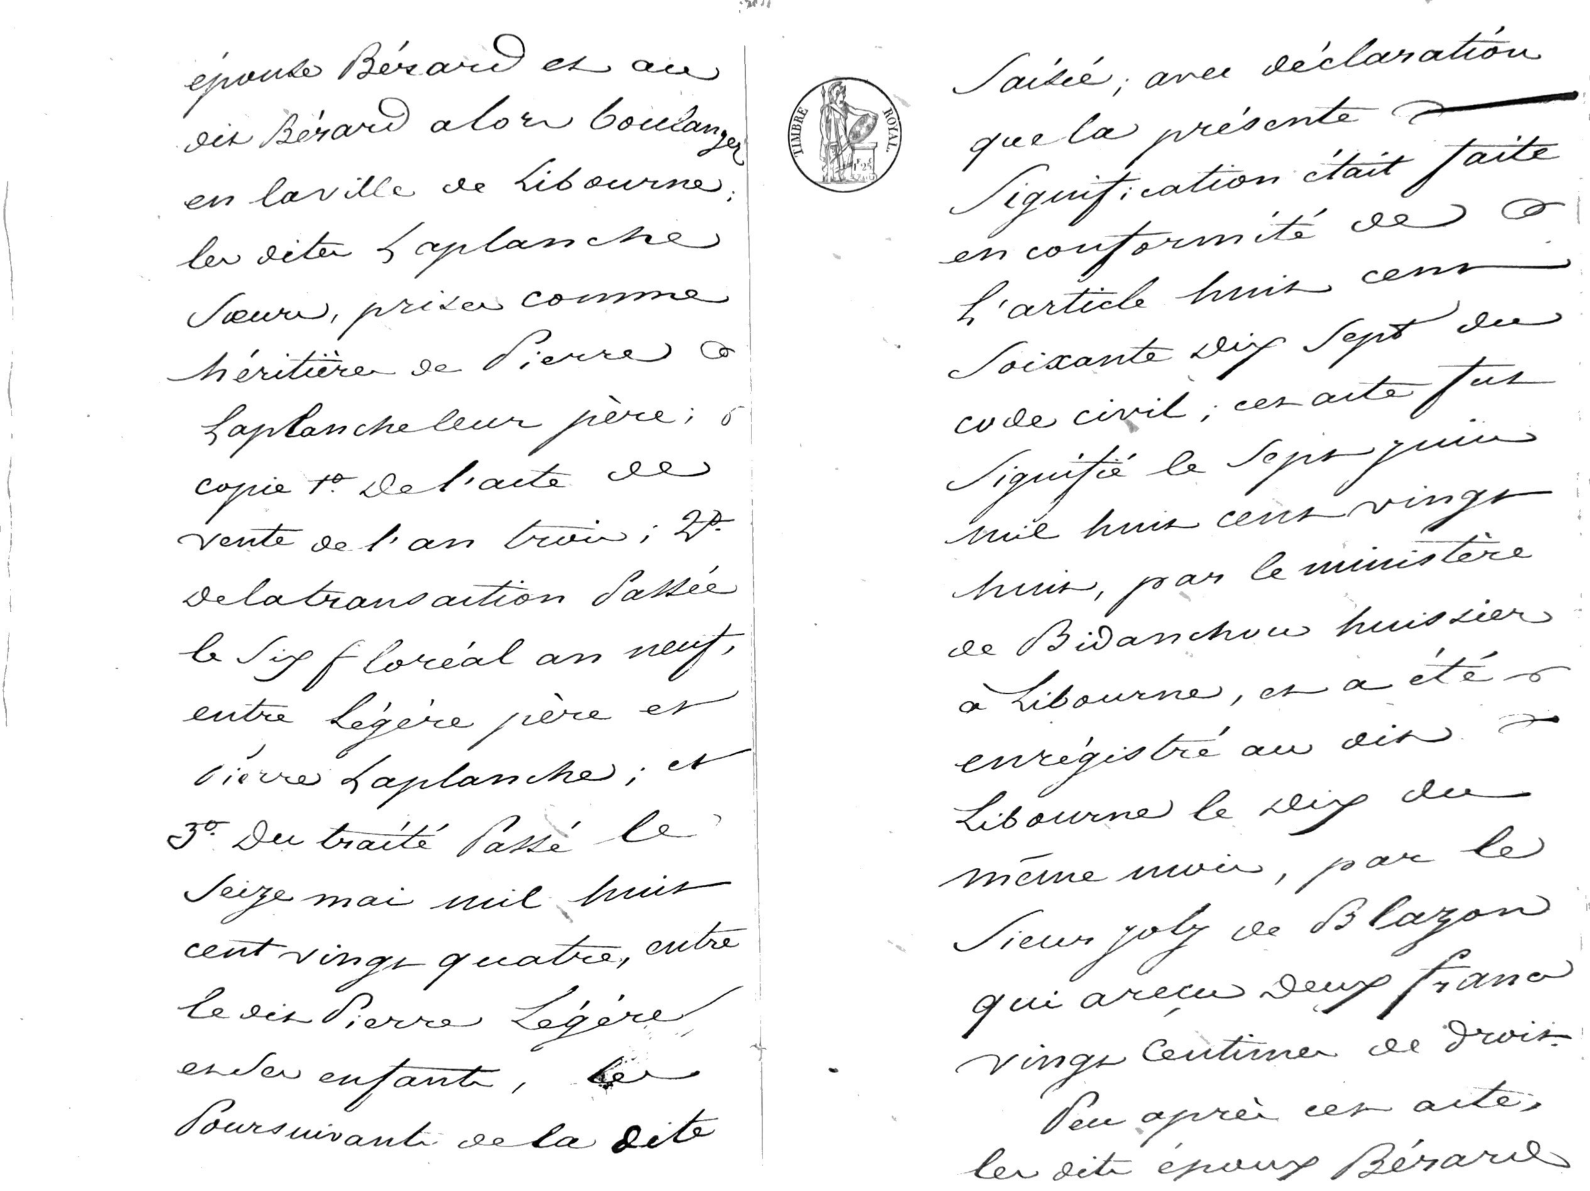 épouse Bérard et au
dit Bérard alors boulanger
en la ville de Libourne ;
les dites Laplanche
Sœurs, prises comme
héritières de Pierre
Laplanche leur père ;
copie 1º. De l'acte de
vente de l'an trois ; 2º.
De la transaction Passée
le Six floréal an neuf,
entre Légére père et
Pierre Laplanche ; et
3º. Du traité Passé le
Seize mai mil huit
cent vingt quatre, entre
le dit Pierre Légére
et Ses enfants, les
Poursuivants de la dite
TIMBRE ROYAL.
Saisie ; avec déclaration
que la présente
Signification était faite
en conformité de
L'article huit cent
Soixante Dix Sept du
code civil ; cet acte fut
Signifié le Sept juin
mil huit cent vingt
huit, par le ministère
de Bidanchou huissier
à Libourne, et a été
enrégistré au dit
Libourne le Dix du
même mois, par le
Sieur Joly de Blazon
qui a reçu Deux francs
vingt Centimes de Droit.
Peu après cet acte,
les dits époux Bérard